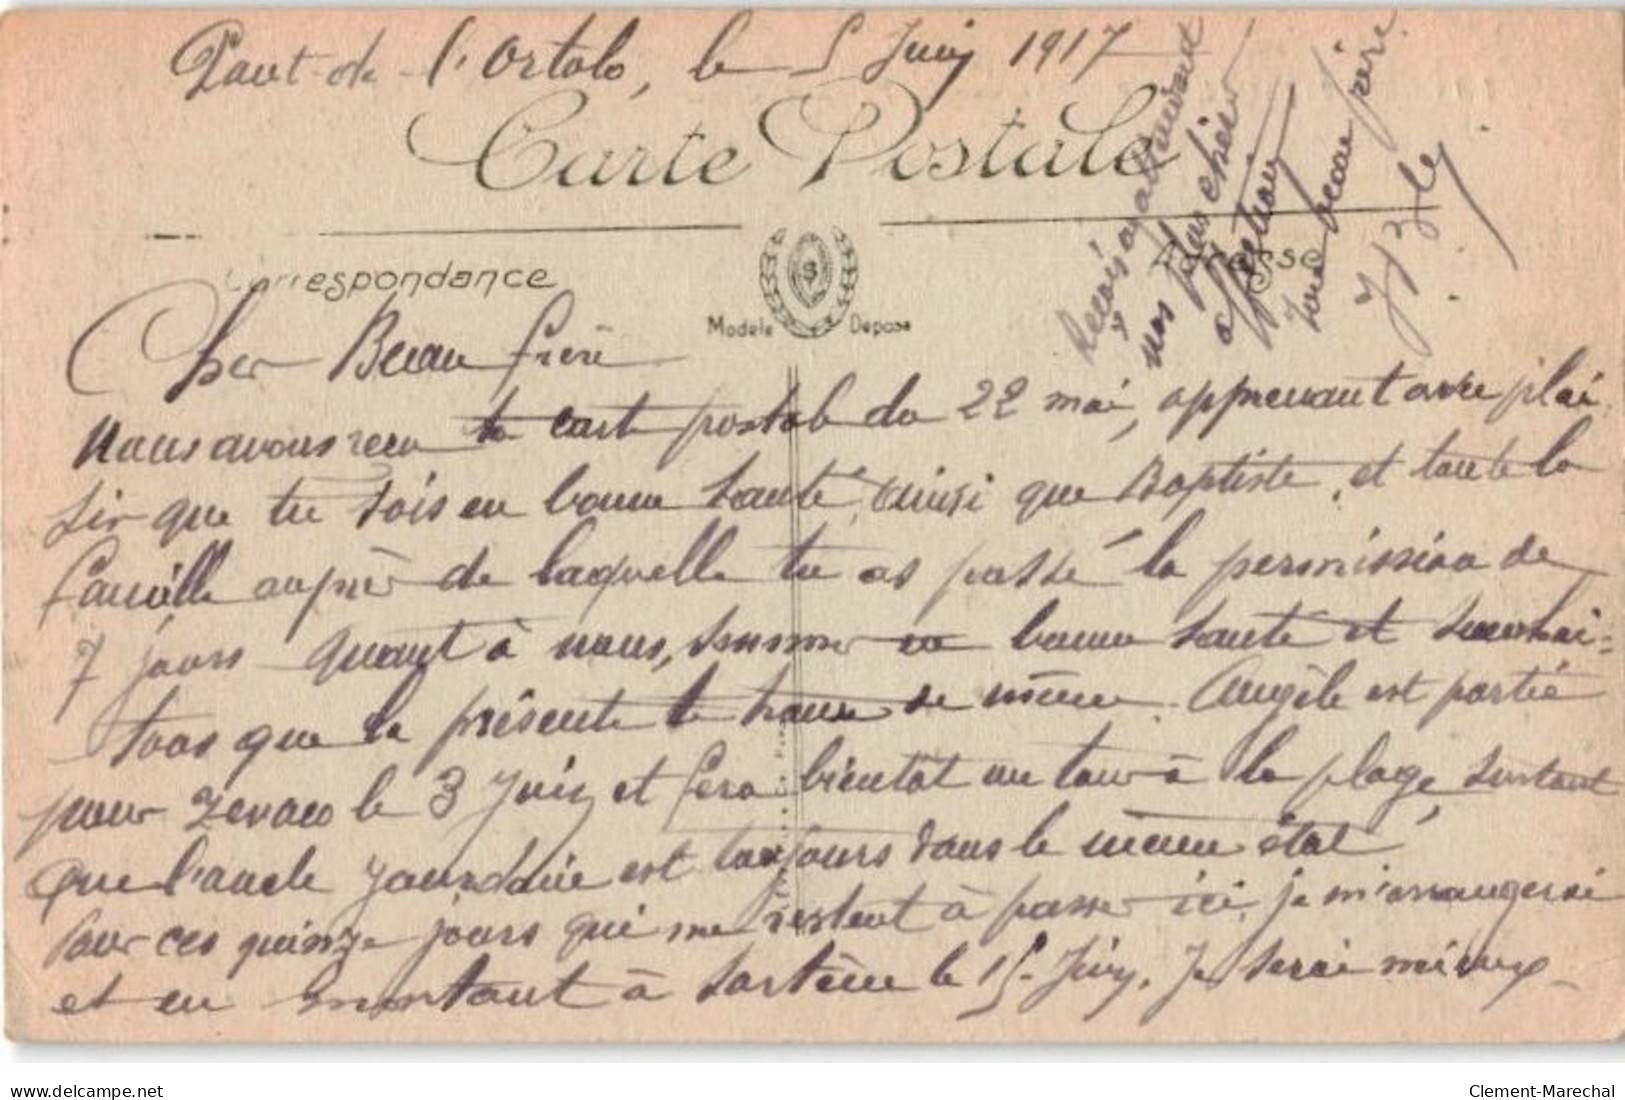 Pont de l'Ortolo, le 5 Juin 1917
Carte Postale
Correspondance
Adresse
Modele Depose
S
Reçois en attendant
nos plus chères
affections
ton beau frère
Cher Beau frère
Nous avons reçu ta carte postale du 22 mai, apprenant avec plai
sir que tu sois en bonne santé, ainsi que Baptiste, et toute la
famille auprès de laquelle tu as passé la permission de
7 jours quant à nous, sommes en bonne santé et souhai=
tons que la présente te trouve de même. Angèle est partie
pour Zevaco le 3 Juin et fera bientôt un tour à la plage, surtout
que l'oncle est toujours dans le même état.
Pour ces quinze jours qui me restent à passer ici, je m'arrangerai
et en montant à Sartène le 15 Juin, Je serai mieux
delcampe.net
Clement-Marechal